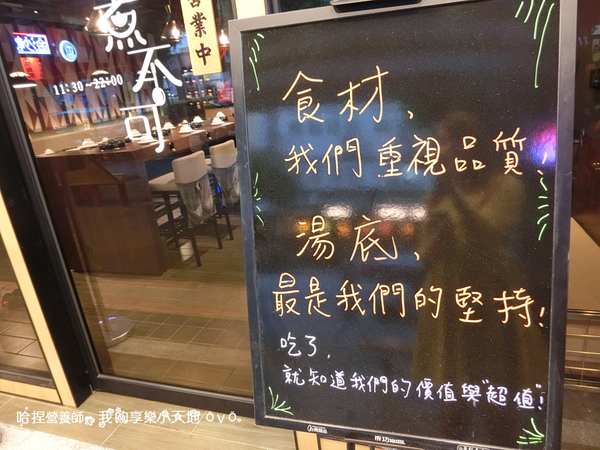 煮不可
營業中
11:30~22:00
食材、
我們重視品質!
湯底、
最是我們的堅持!
吃了,
就知道我們的價值與"超值"!
哈捏營養師。我的享樂小天地 ôvô。